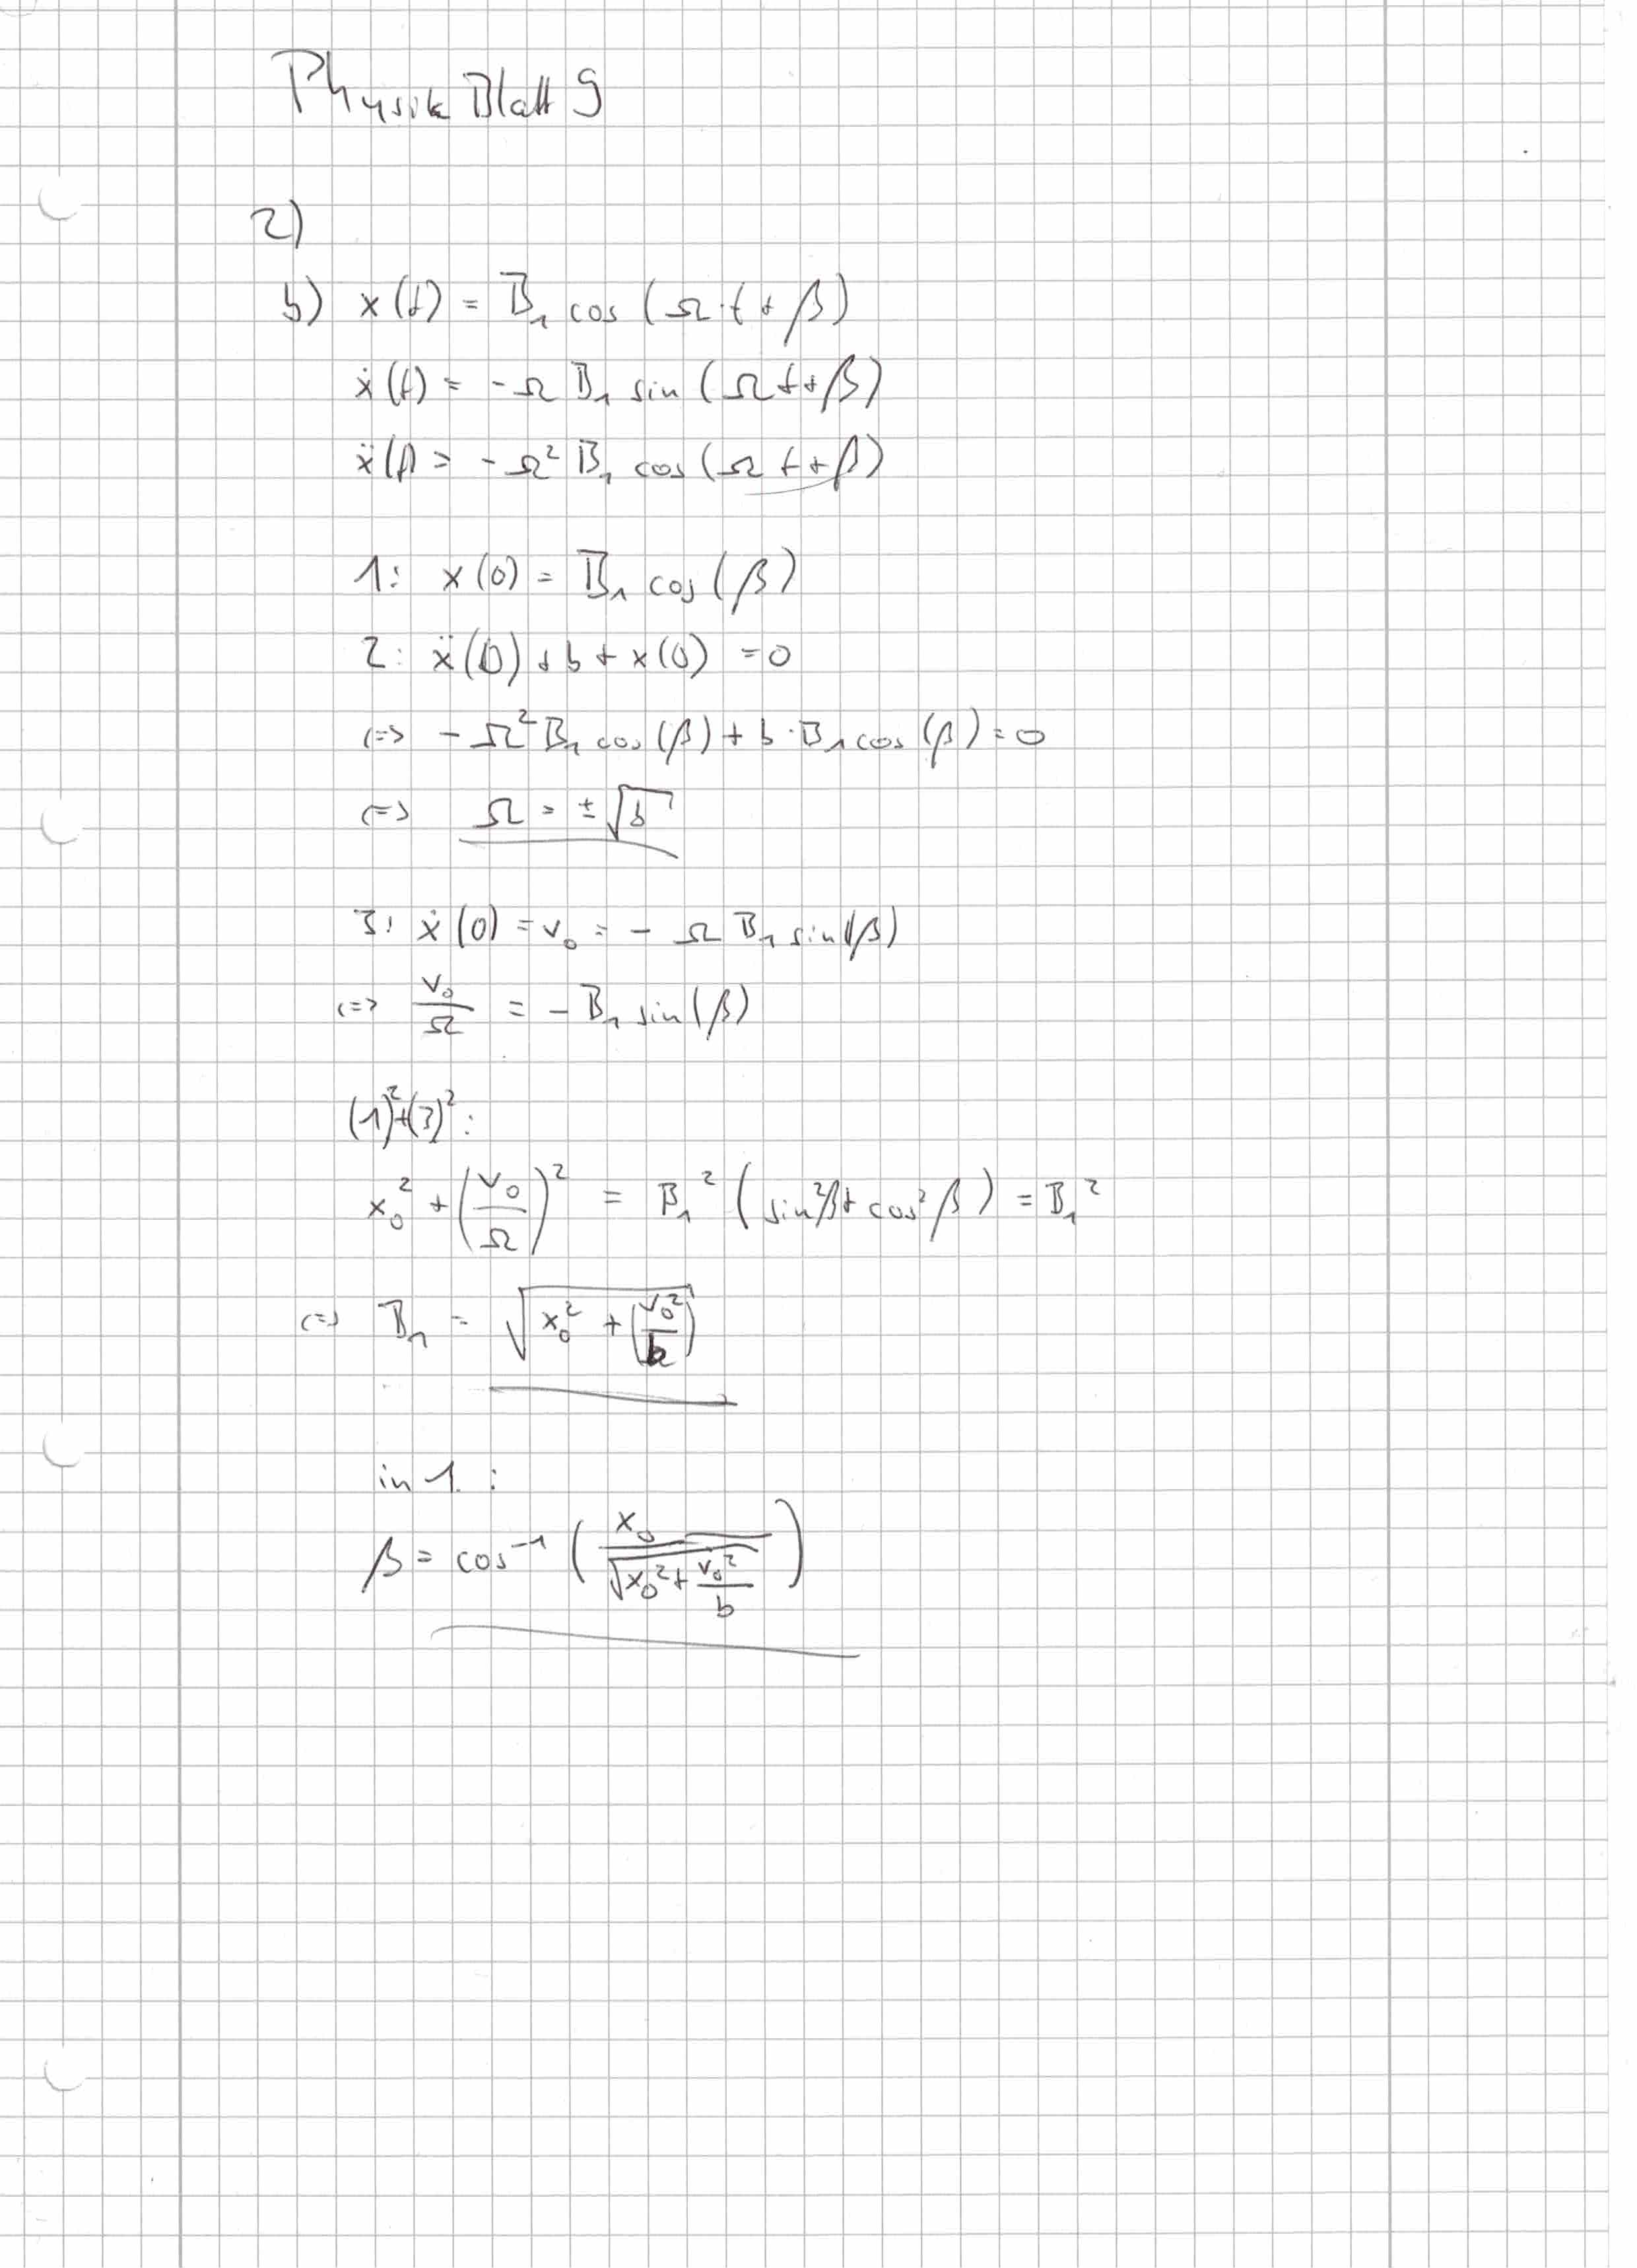 Physik Blatt 9
2)
b) x(t) = B₁ cos (Ω·t + β)
ẋ(t) = -Ω B₁ sin (Ω t + β)
ẍ(t) = -Ω² B₁ cos (Ω t + β)
1: x(0) = B₁ cos(β)
2: ẍ(0) + b + x(0) = 0
<=> -Ω² B₁ cos(β) + b · B₁ cos(β) = 0
<=> Ω = ±√b
3: ẋ(0) = v₀ = - Ω B₁ sin(β)
<=> v₀/Ω = -B₁ sin(β)
(1)²+(3)²:
x₀² + (v₀/Ω)² = B₁² (sin²β + cos²β) = B₁²
<=> B₁ = √(x₀² + (v₀²/b))
in 1. :
β = cos⁻¹ (x₀/√(x₀² + v₀²/b))